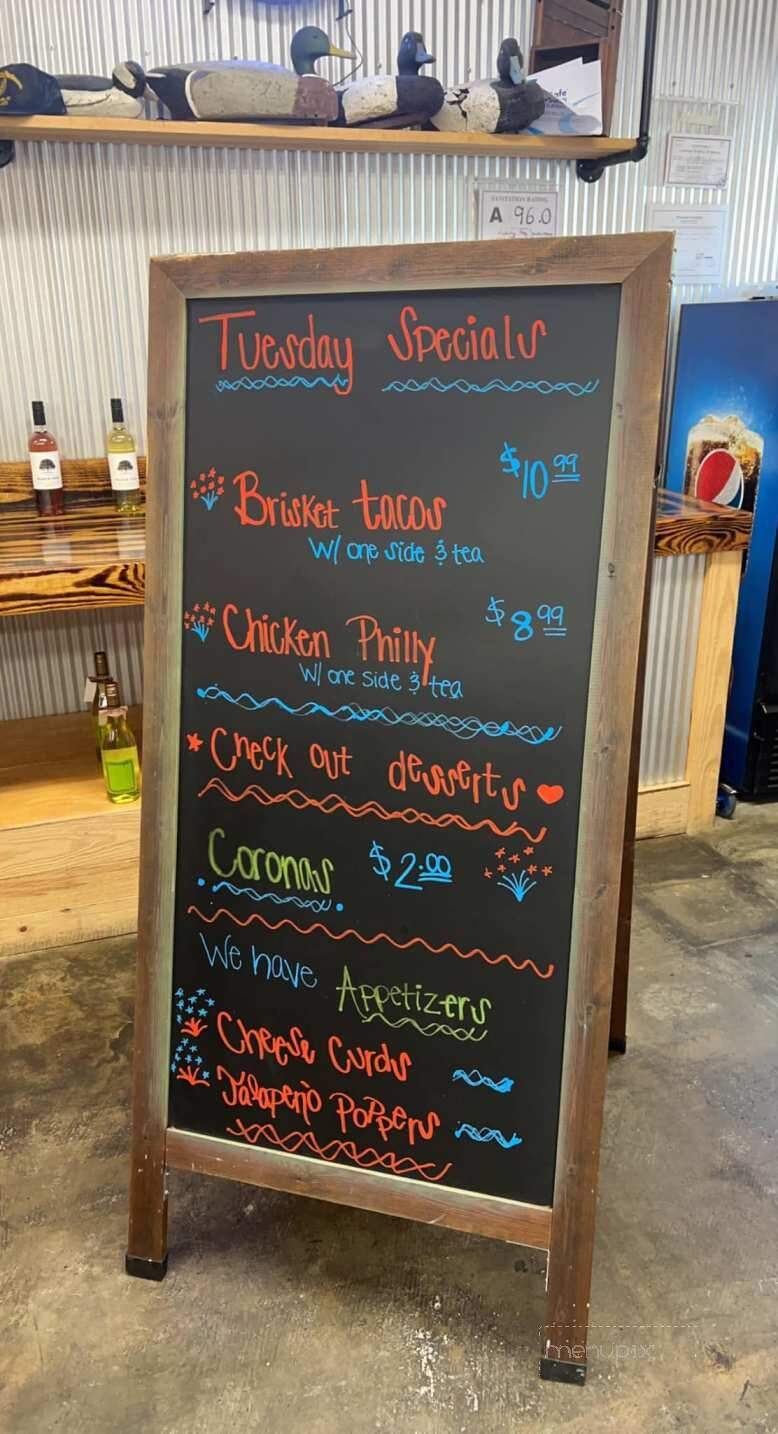 SANITATION RATING
A 96.0
Tuesday Specials
$10.99
Brisket tacos
W/ one side & tea
$8.99
Chicken Philly
W/ one side & tea
Check out desserts
Coronas $2.00
We have Appetizers
Cheese Curds
Jalapeño Poppers
menupix